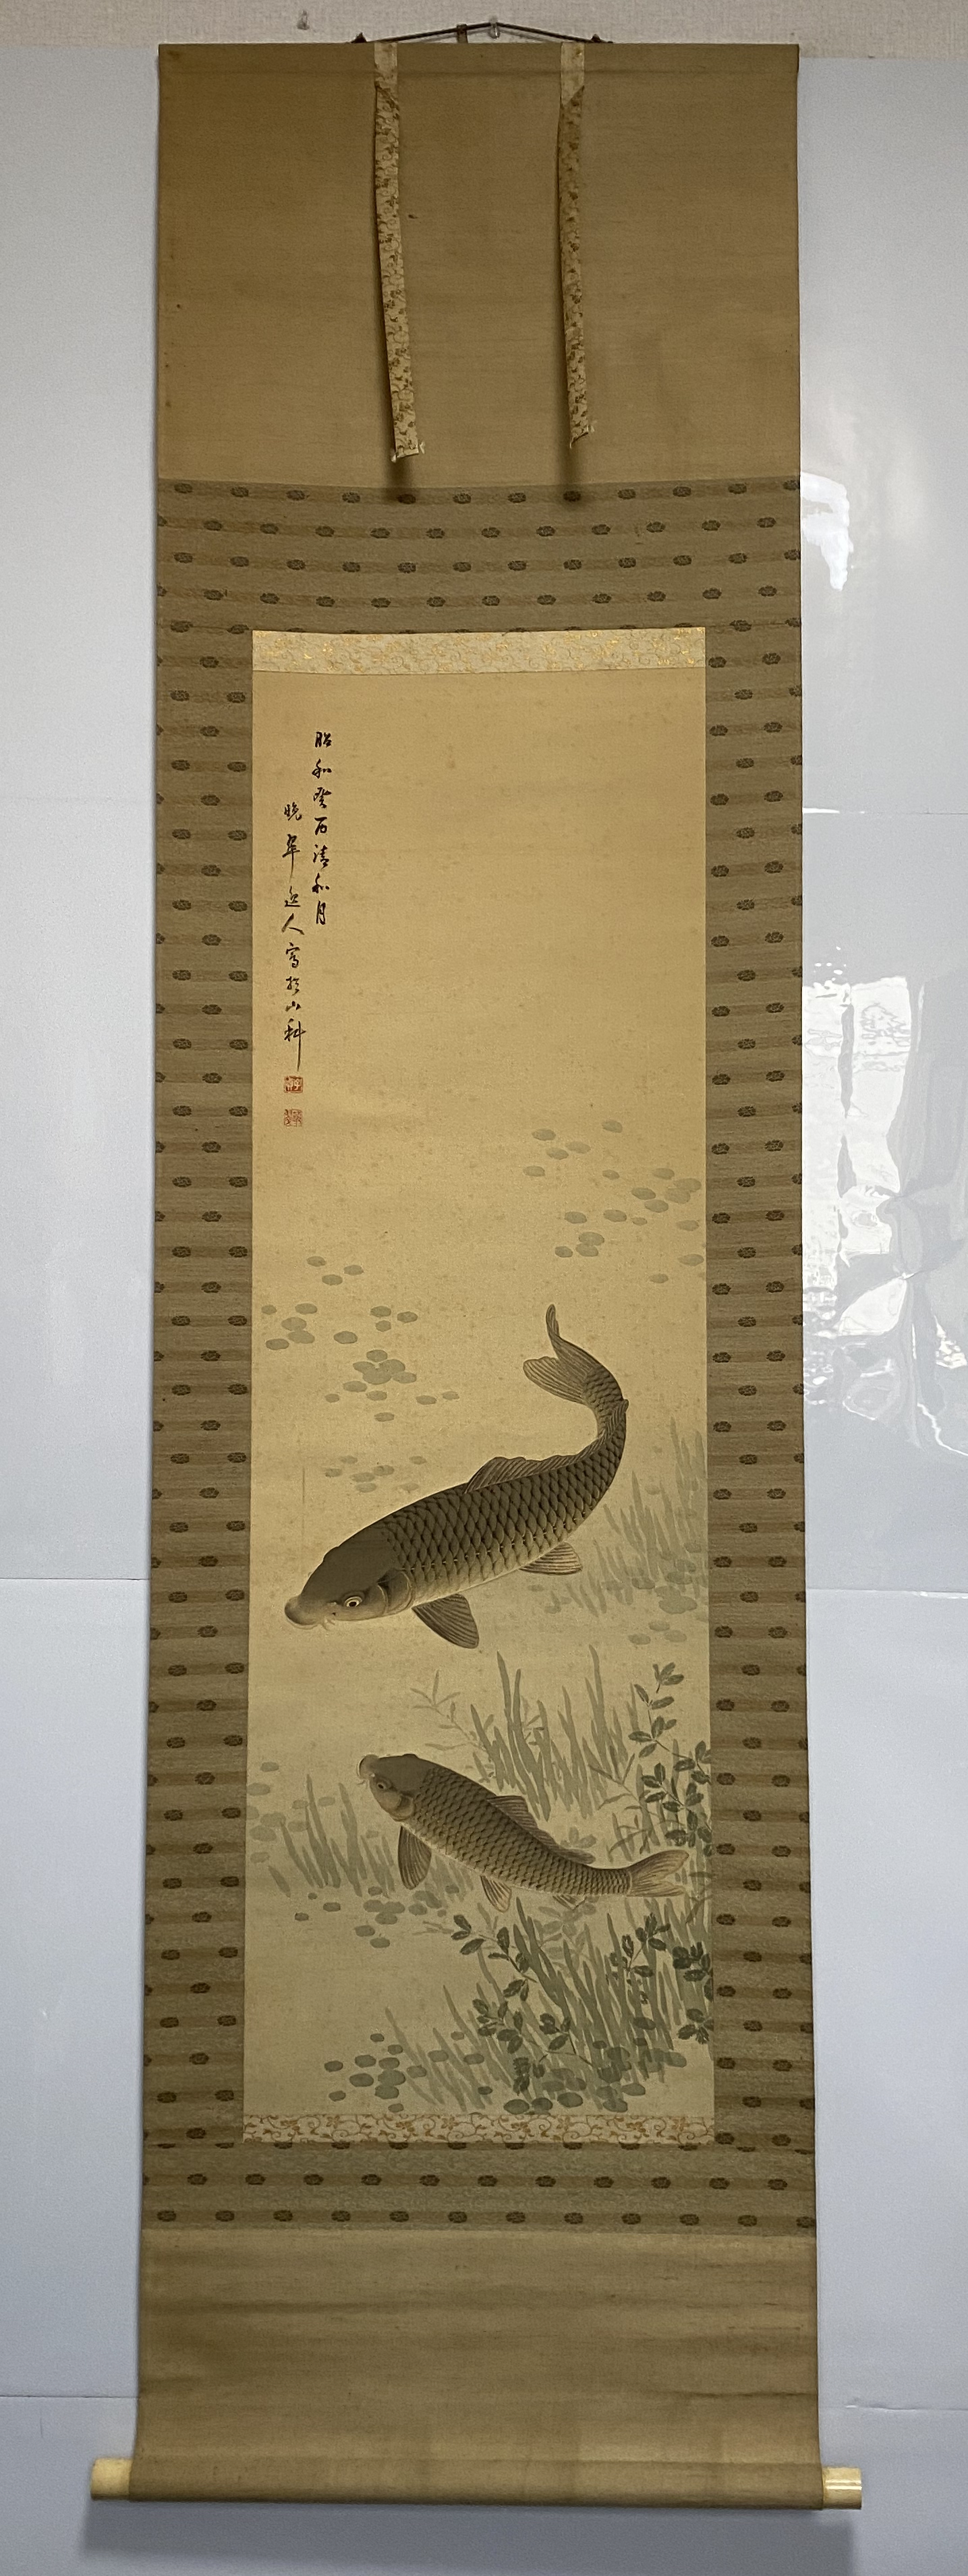 昭和癸酉清和月
晩翠逸人寫於山科